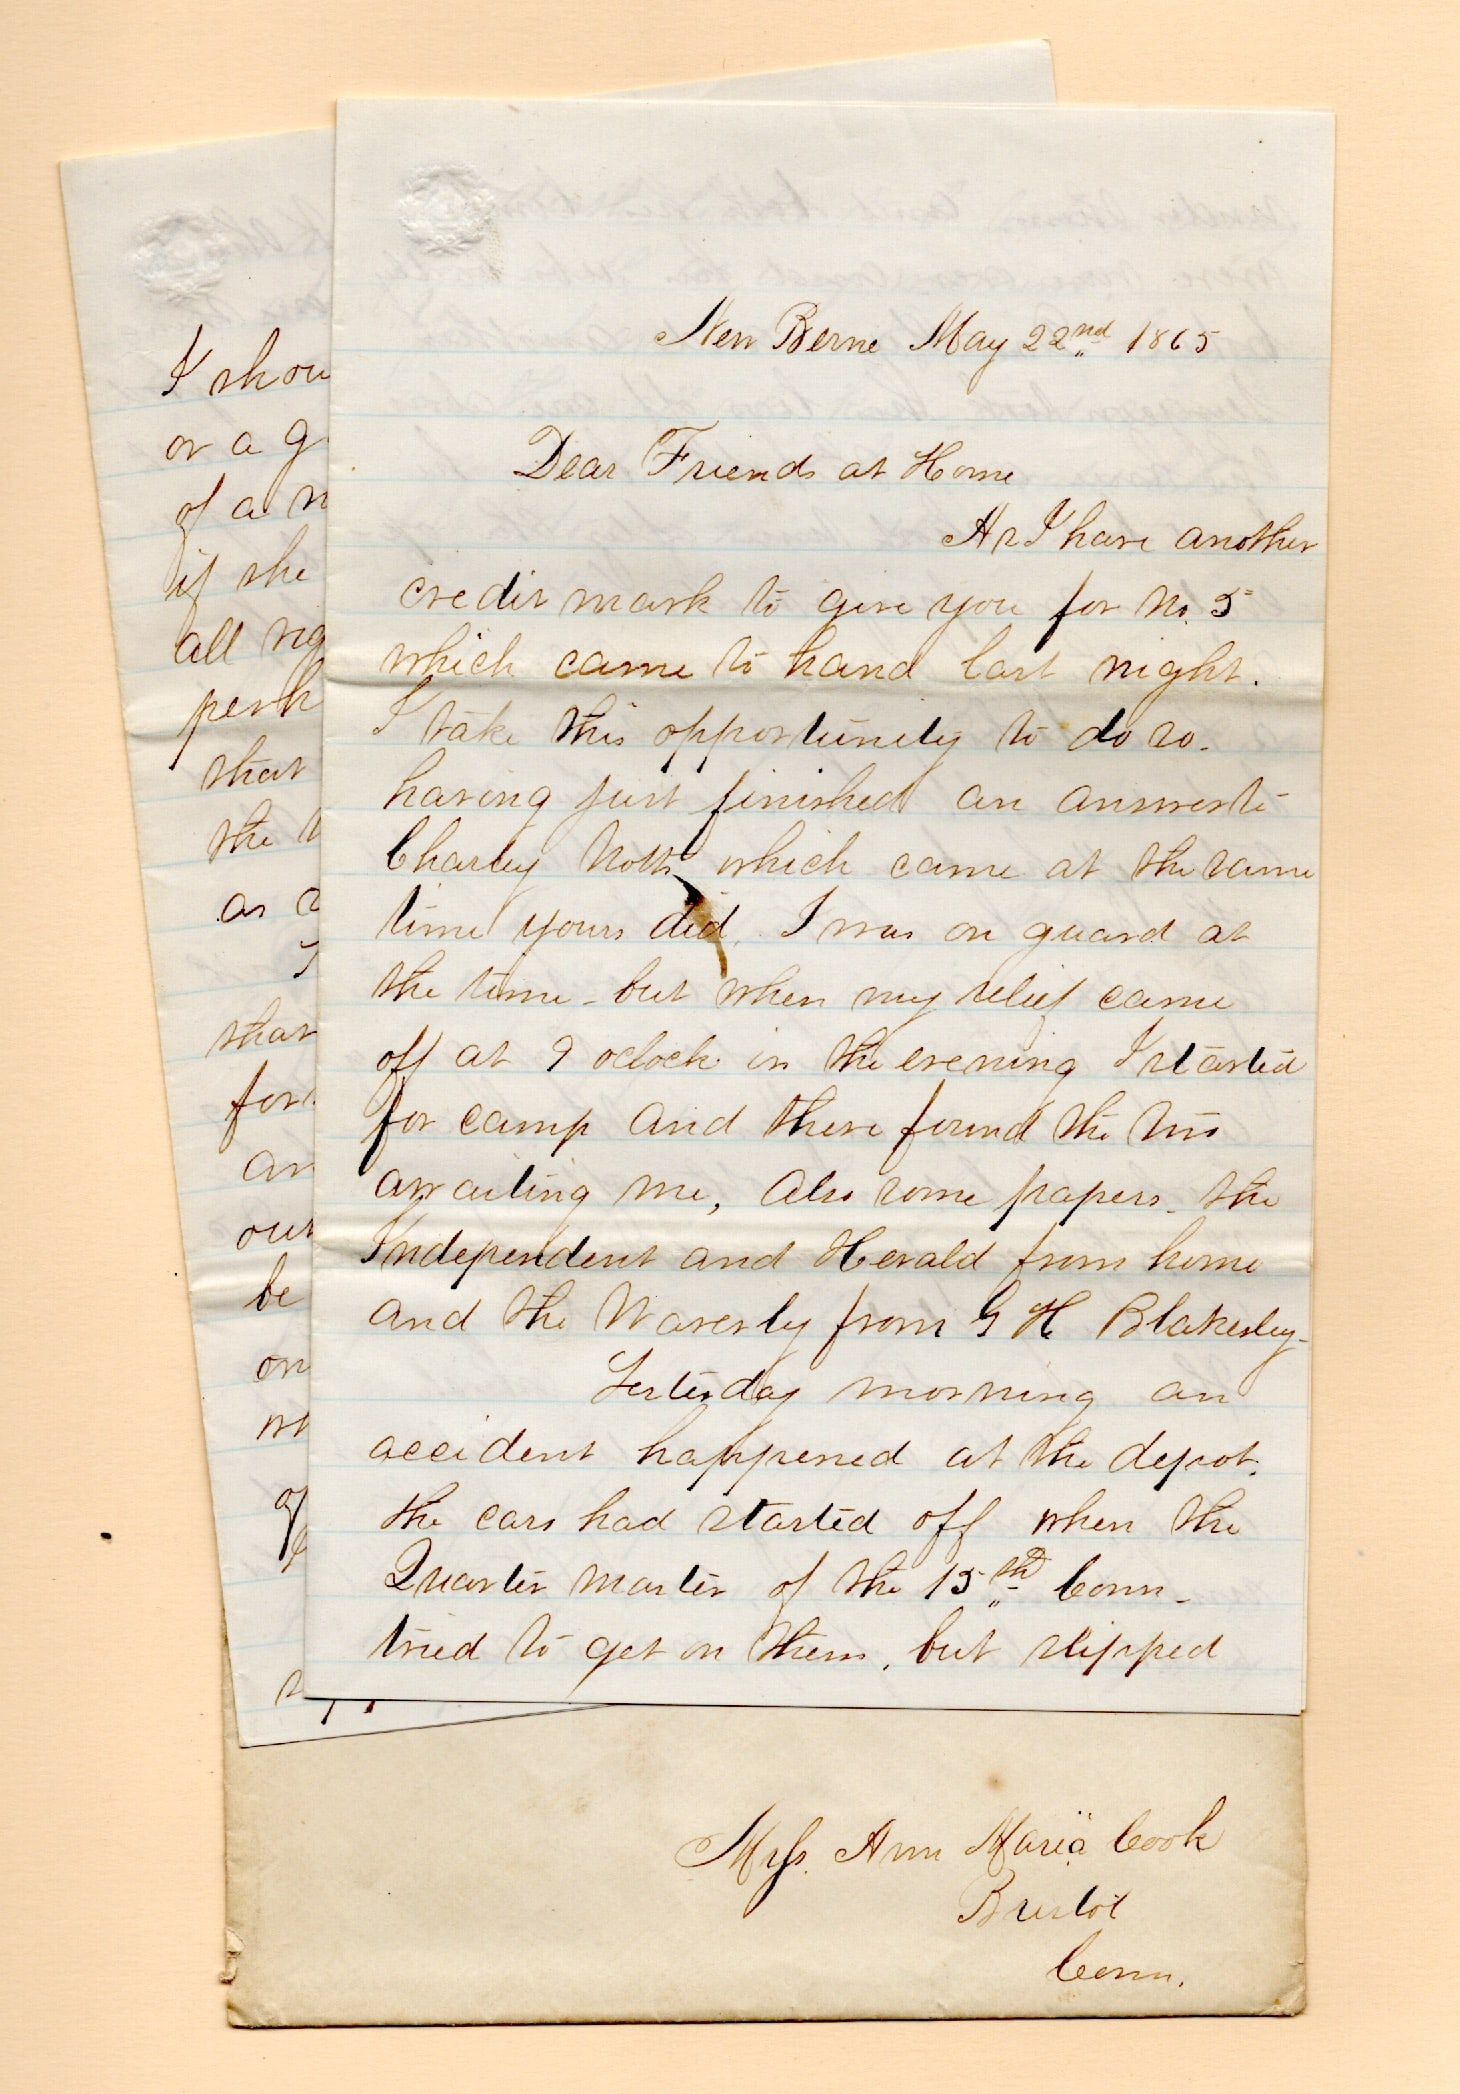 New Berne May 22nd 1865
Dear Friends at Home
As I have another
credit mark to give you for No. 5
which came to hand last night.
I take this opportunity to do so.
having just finished an answer to
Charley Notts which came at the same
time yours did. I was on guard at
the time - but when my relief came
off at 9 oclock in the evening I started
for camp and there found the two
awaiting me, Also some papers - the
Independent and Herald from home
and the Waverly from G H Blakesley -
Yesterday morning an
accident happened at the depot.
the cars had started off when the
Quarter master of the 15th Conn -
tried to get on them, but slipped
I shou
or a g
of a n
if she
all rig
perh
that
the
as
that
for
an
our
be
on
wh
of
Miss. Ann Maria Cook
Bristol
Conn.